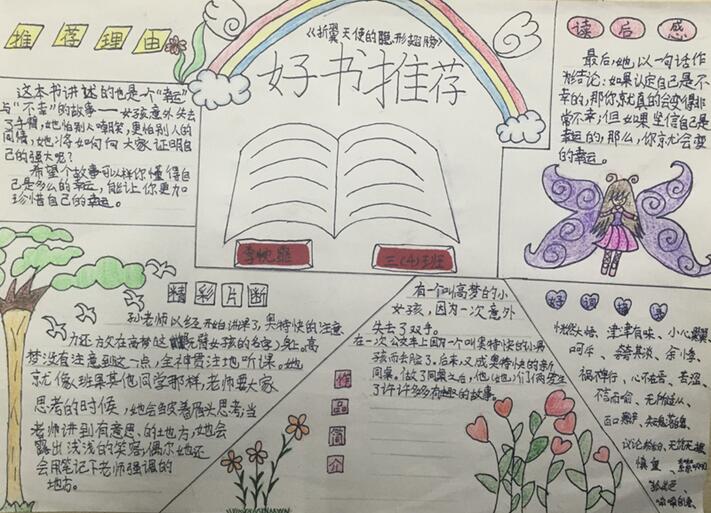 推荐理由
这本书讲述的也是一个“幸运”
与“不幸”的故事——女孩意外失去
了手臂，她怕别人嘲笑，更怕别人的
同情，她将如何向大家证明自
己的强大呢？
希望个故事可以样你懂得自
己是多么的幸运，能让你更加
珍惜自己的幸运。
《折翼天使的隐形翅膀》
好书推荐
三(4)班
读后感
最后，她以一句话作
为结论：如果认定自己是不
幸的，那你就真的会变得非
常不幸，但如果坚信自己是
幸运的，那么，你就会变
的幸运。
精彩片断
孙老师以经开始讲课了，奥特快的注意
力还放在高梦这
高
梦没有注意到这一点，全神贯注地听课。她
就像班里其他同学那样，老师要大家
思考的时候，她会
思考；当
老师讲到有意思的地方，她会
露出浅浅的笑容；偶尔她还
会用笔记下老师强调的
地方。
作品简介
有一个叫高梦的小
女孩，因为一次意外
失去了双手。
在一次公交车上因为一个叫奥特快的小男
孩而去脸了。后来，又成奥特快的新
同桌。做了同桌之后，他（她）们俩发生
了许许多多有趣的故事。
好词摘录
恍然大悟、津津有味、小心翼翼、
祸不单行、心不在焉、
不言而喻、无所适从、
议论纷纷、
慎重、